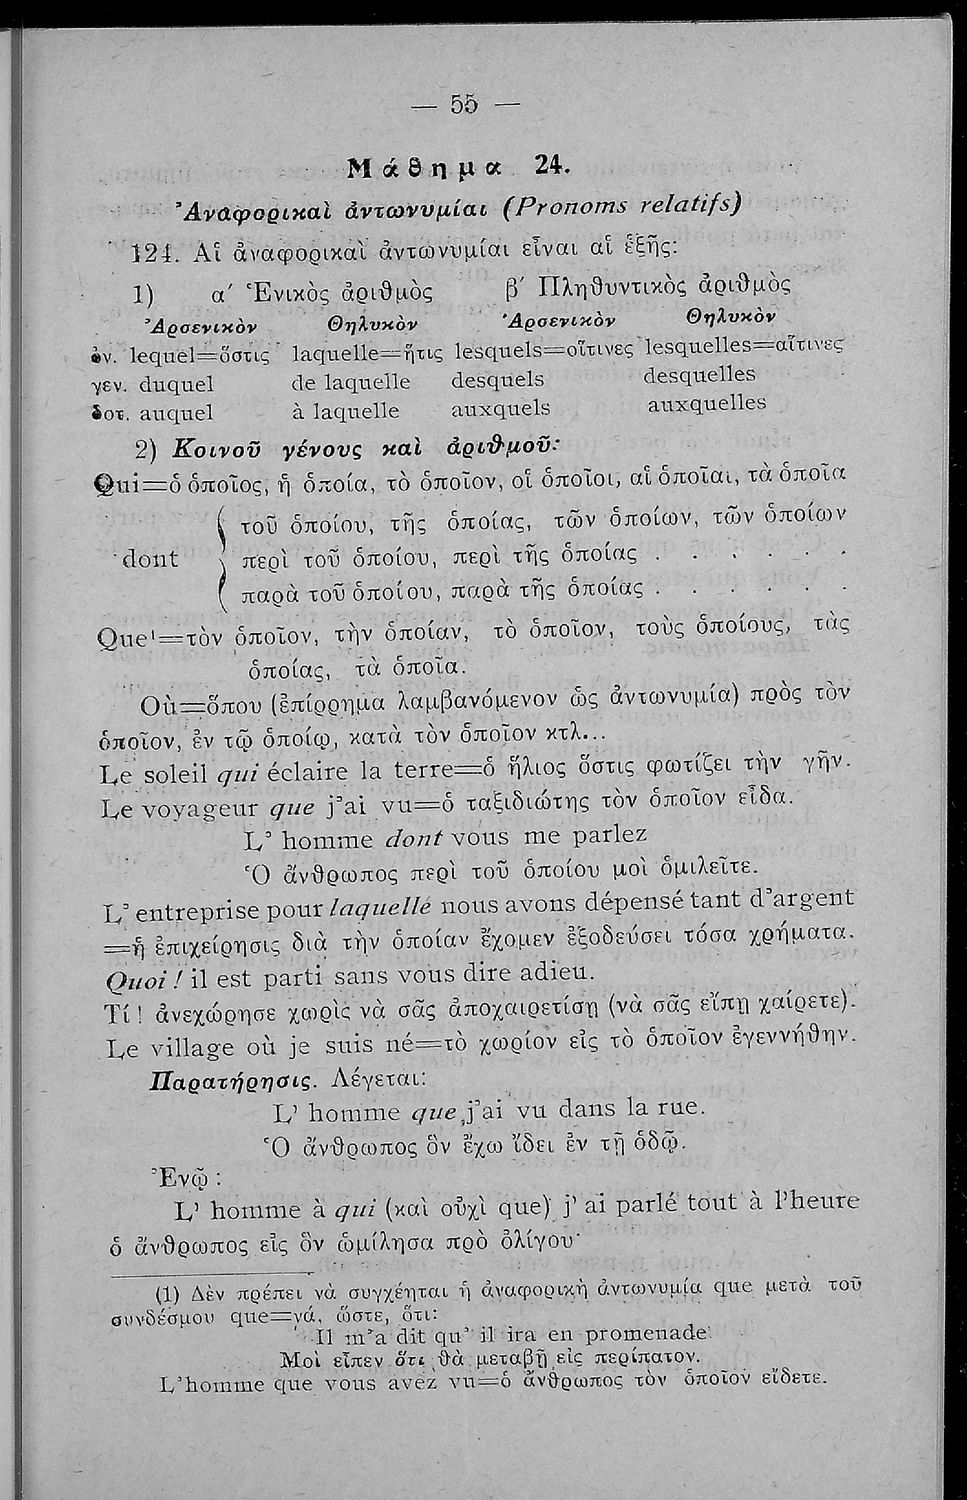 — 55 —
Μάθημα 24.
Ἀναφορικαὶ ἀντωνυμίαι (Pronoms relatifs)
124. Αἱ ἀναφορικαὶ ἀντωνυμίαι εἶναι αἱ ἑξῆς:
1) α΄ Ἑνικὸς ἀριθμὸς β΄ Πληθυντικὸς ἀριθμὸς
Ἀρσενικὸν Θηλυκὸν Ἀρσενικὸν Θηλυκὸν
ὀν. lequel=ὅστις laquelle=ἥτις lesquels=οἵτινες lesquelles=αἵτινες
γεν. duquel de laquelle desquels desquelles
δοτ. auquel à laquelle auxquels auxquelles
2) Κοινοῦ γένους καὶ ἀριθμοῦ:
Qui=ὁ ὁποῖος, ἡ ὁποία, τὸ ὁποῖον, οἱ ὁποῖοι, αἱ ὁποῖαι, τὰ ὁποῖα
τοῦ ὁποίου, τῆς ὁποίας, τῶν ὁποίων, τῶν ὁποίων
dont { περὶ τοῦ ὁποίου, περὶ τῆς ὁποίας . . . . . .
παρὰ τοῦ ὁποίου, παρὰ τῆς ὁποίας . . . . . .
Que¹=τὸν ὁποῖον, τὴν ὁποίαν, τὸ ὁποῖον, τοὺς ὁποίους, τὰς
ὁποίας, τὰ ὁποῖα.
Où=ὅπου (ἐπίρρημα λαμβανόμενον ὡς ἀντωνυμία) πρὸς τὸν
ὁποῖον, ἐν τῷ ὁποίῳ, κατὰ τὸν ὁποῖον κτλ...
Le soleil qui éclaire la terre=ὁ ἥλιος ὅστις φωτίζει τὴν γῆν.
Le voyageur que j'ai vu=ὁ ταξιδιώτης τὸν ὁποῖον εἶδα.
L' homme dont vous me parlez
Ὁ ἄνθρωπος περὶ τοῦ ὁποίου μοὶ ὁμιλεῖτε.
L' entreprise pour laquelle nous avons dépensé tant d'argent
=ἡ ἐπιχείρησις διὰ τὴν ὁποίαν ἔχομεν ἐξοδεύσει τόσα χρήματα.
Quoi ! il est parti sans vous dire adieu.
Τί! ἀνεχώρησε χωρὶς νὰ σᾶς ἀποχαιρετίσῃ (νὰ σᾶς εἴπῃ χαίρετε).
Le village où je suis né=τὸ χωρίον εἰς τὸ ὁποῖον ἐγεννήθην.
Παρατήρησις. Λέγεται:
L' homme que j'ai vu dans la rue.
Ὁ ἄνθρωπος ὃν ἔχω ἴδει ἐν τῇ ὁδῷ.
Ἐνῷ :
L' homme à qui (καὶ οὐχὶ que) j' ai parlé tout à l'heure
ὁ ἄνθρωπος εἰς ὃν ὡμίλησα πρὸ ὀλίγου·
(1) Δὲν πρέπει νὰ συγχέηται ἡ ἀναφορικὴ ἀντωνυμία que μετὰ τοῦ
συνδέσμου que=νά, ὥστε, ὅτι:
Il m'a dit qu' il ira en promenade
Μοὶ εἶπεν ὅτι θὰ μεταβῇ εἰς περίπατον.
L'homme que vous avez vu=ὁ ἄνθρωπος τὸν ὁποῖον εἴδετε.